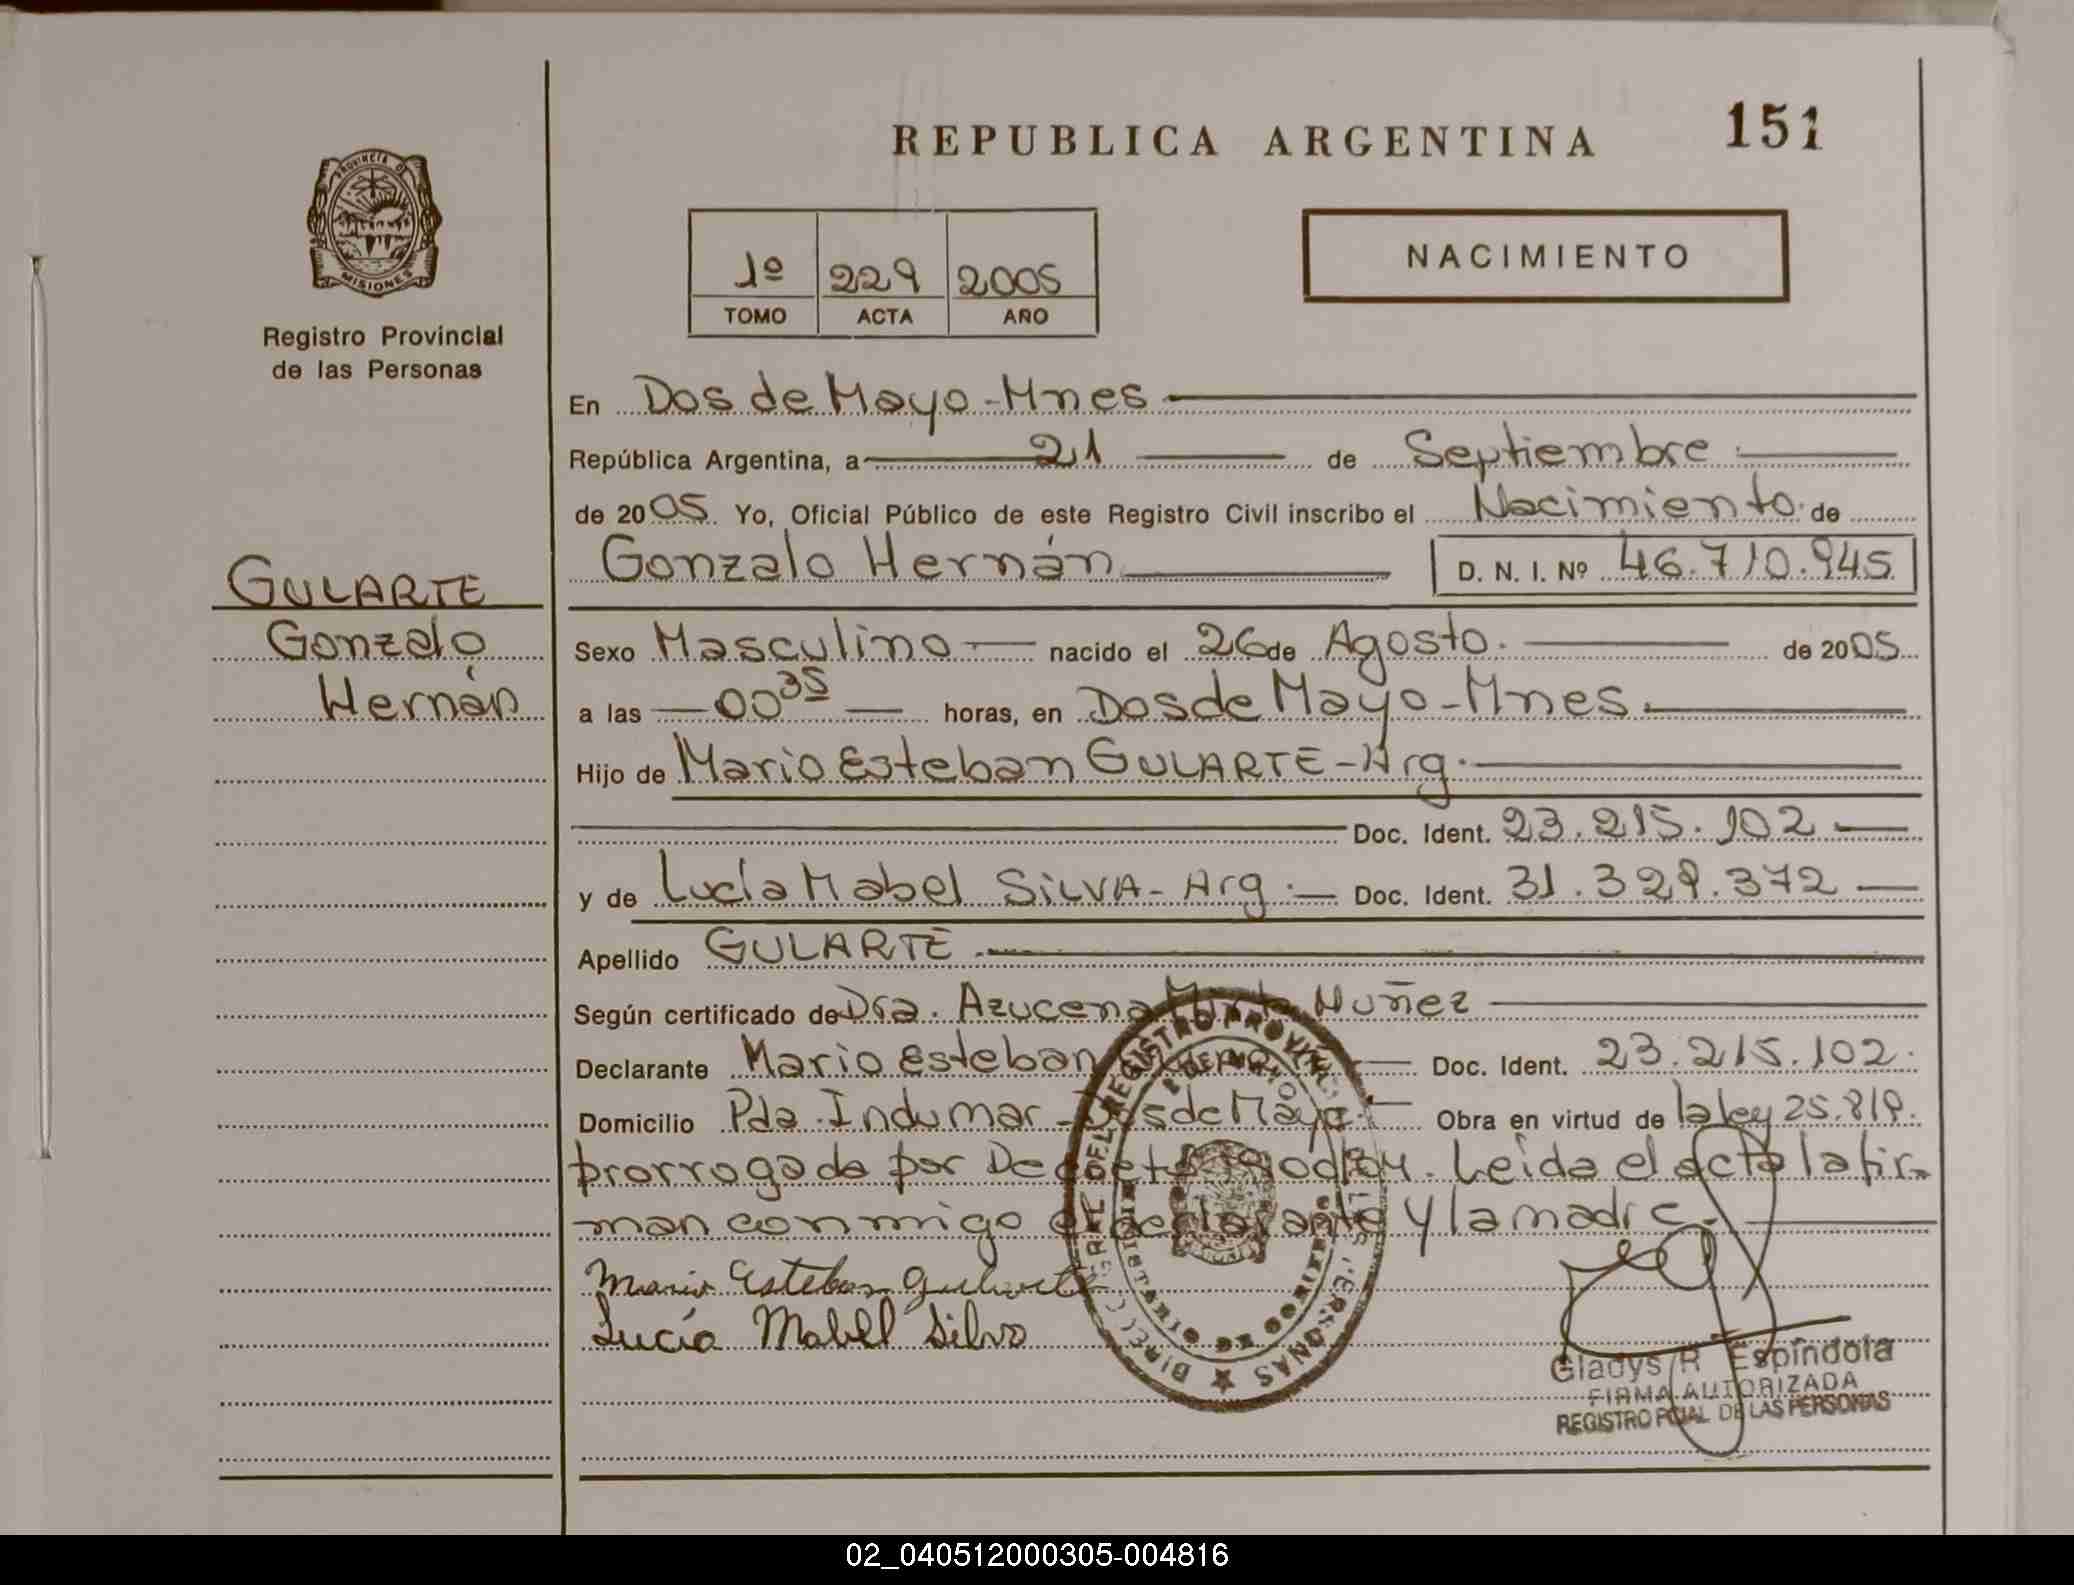 REPUBLICA ARGENTINA
151
PROVINCIA DE
MISIONES
Registro Provincial
de las Personas
1º 229 2005
TOMO ACTA AÑO
NACIMIENTO
En Dos de Mayo - Mnes
República Argentina, a 21 de Septiembre
de 2005. Yo, Oficial Público de este Registro Civil inscribo el Nacimiento de
Gonzalo Hernán D. N. I. Nº 46.710.945
GULARTE
Gonzalo
Hernán
Sexo Masculino nacido el 26 de Agosto. de 2005
a las 00 35 horas, en Dos de Mayo - Mnes.
Hijo de Mario Esteban GULARTE - Arg.
Doc. Ident. 23.215.102
y de Lucía Mabel SILVA - Arg. Doc. Ident. 31.329.372
Apellido GULARTE.
Según certificado de Dra. Azucena Mirta Nuñez
Declarante Mario Esteban Doc. Ident. 23.215.102.
Domicilio Pda. Indumar - Dos de Mayo. Obra en virtud de la ley 25.819.
prorrogada por Decreto Leida el acta la fir-
man conmigo el declarante y la madre.
Mario Esteban Gularte
Lucía Mabel Silva
REGISTRO PERSONAS
Gladys R. Espíndola
FIRMA AUTORIZADA
REGISTRO PCIAL DE LAS PERSONAS
02_040512000305-004816